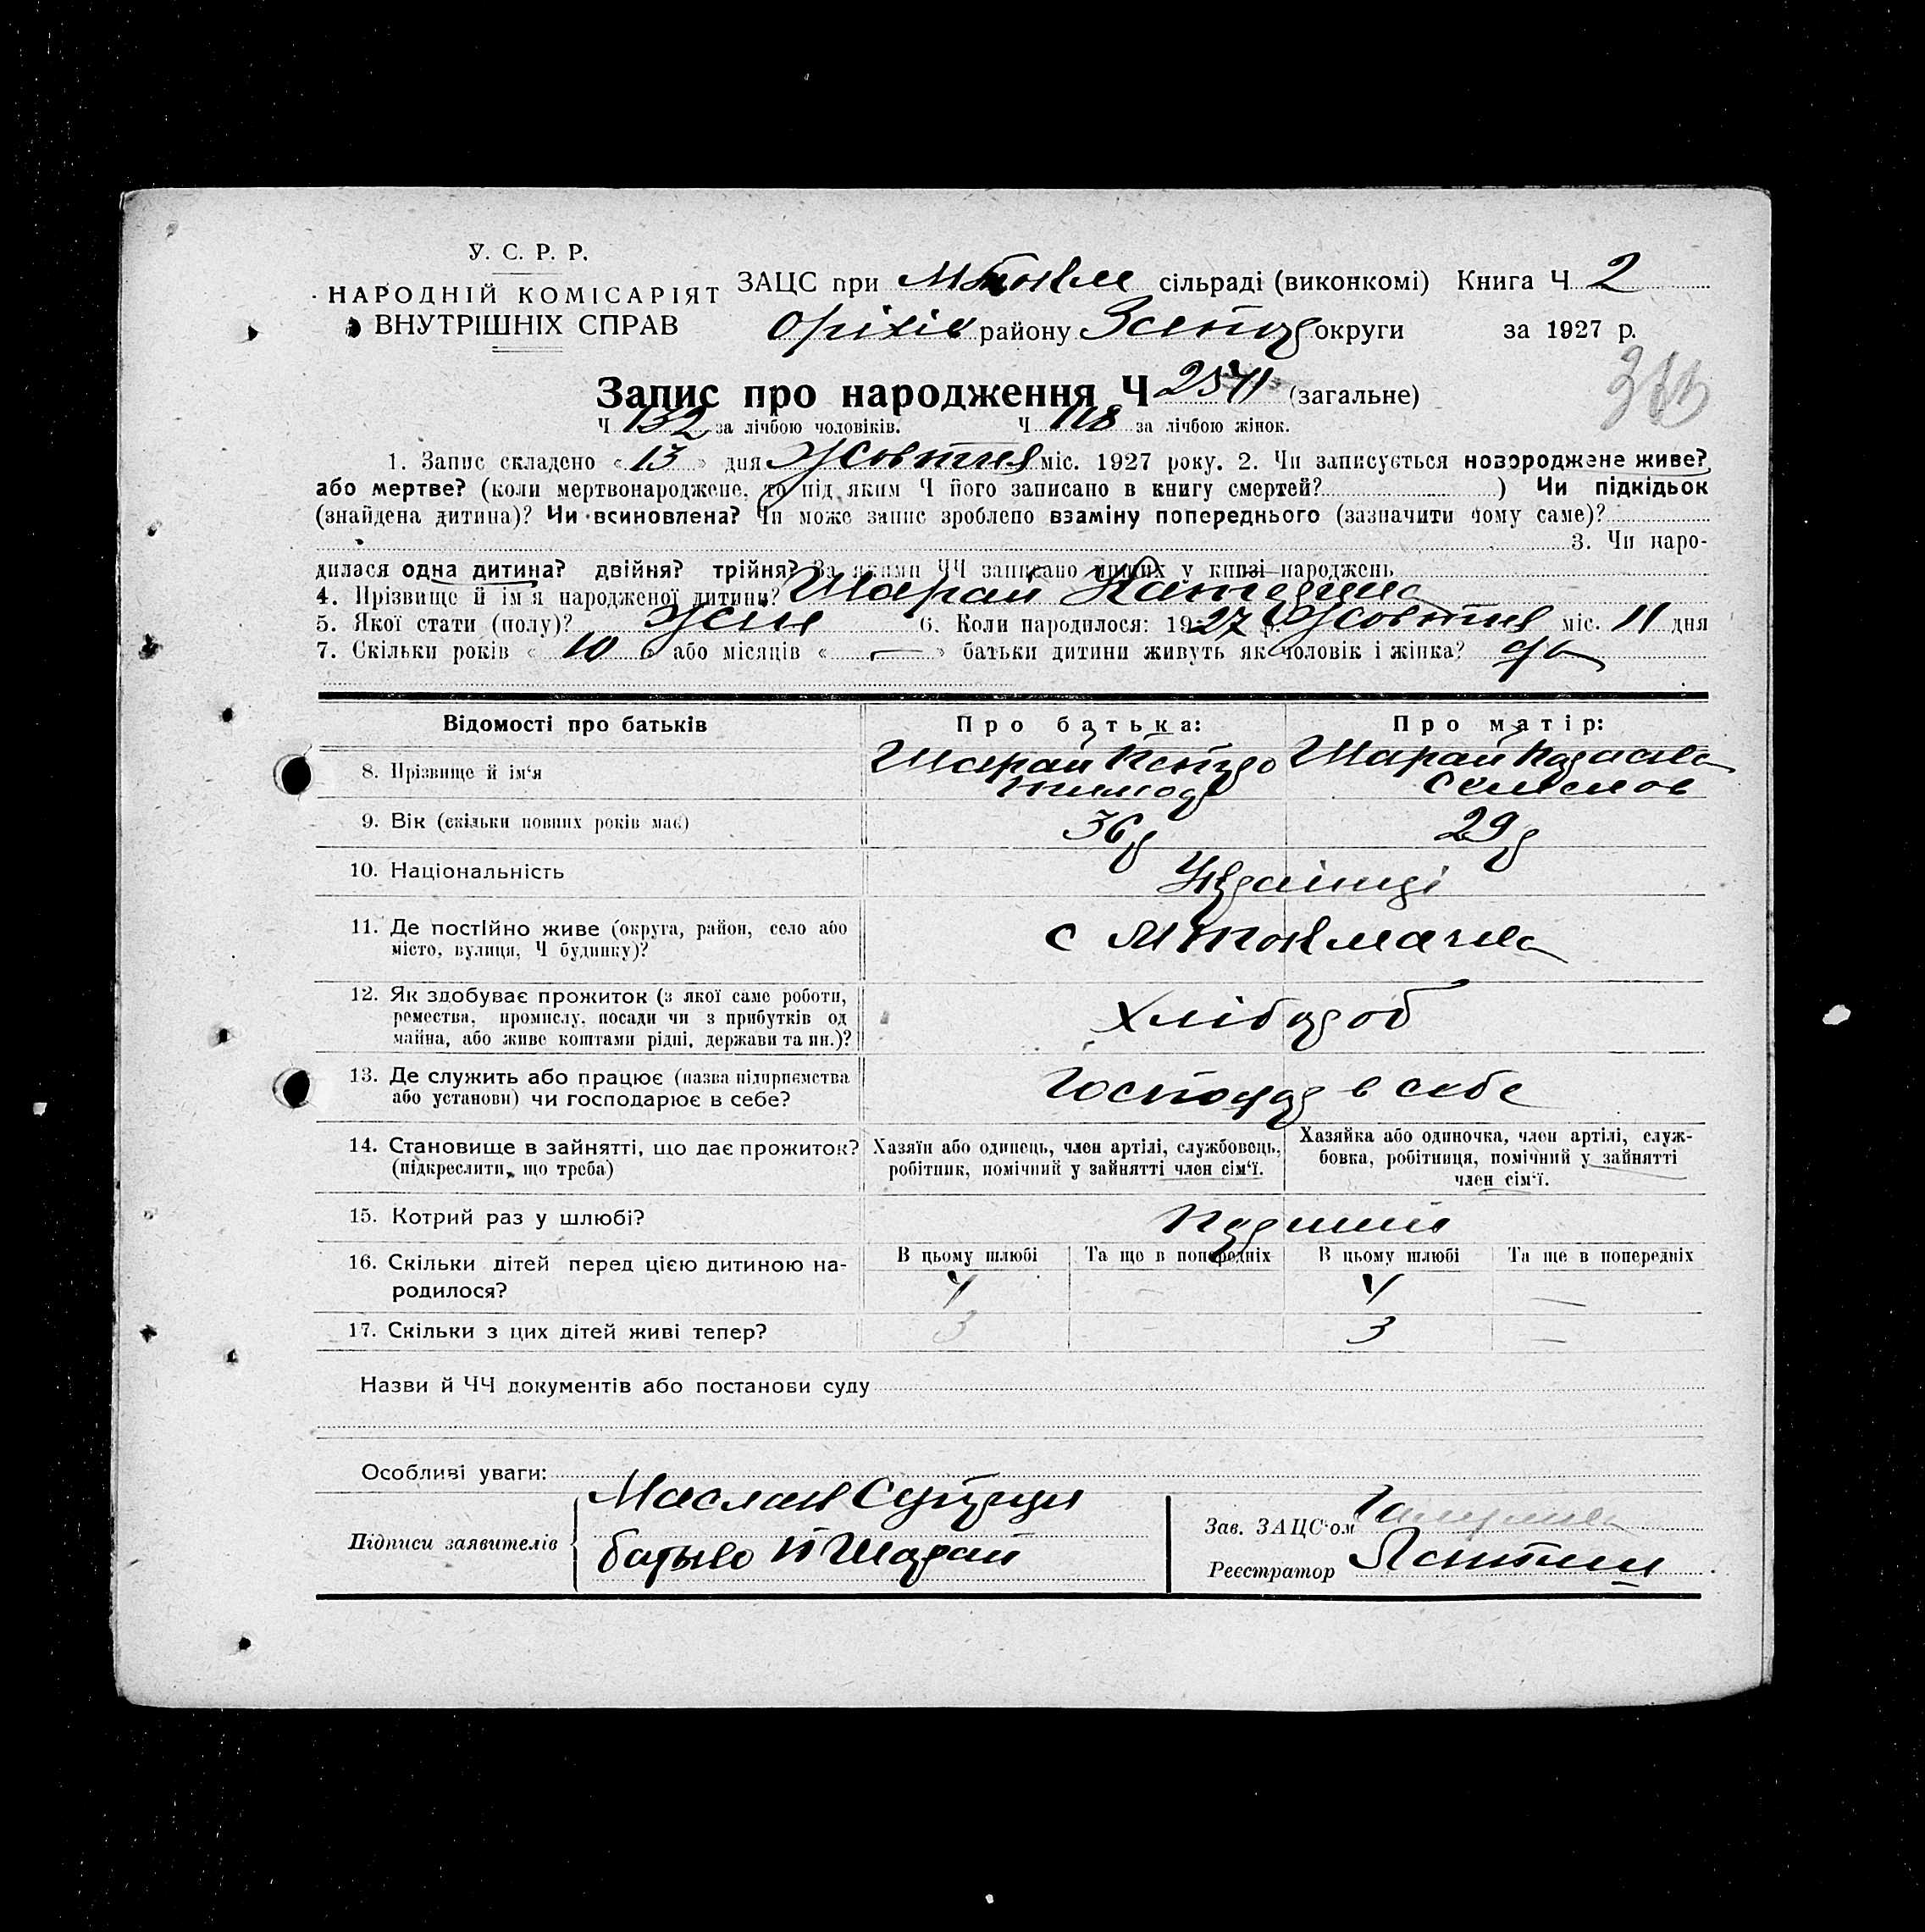 У. С. Р. Р.
НАРОДНІЙ КОМІСАРІЯТ
ВНУТРІШНІХ СПРАВ
ЗАЦС при М Токм сільраді (виконкомі) Книга Ч 2
Оріхів району Запор округи за 1927 р.
Запис про народження Ч (загальне)
Ч 132 за лічбою чоловіків. Ч 118 за лічбою жінок.
1. Запис складено « 13 » дня Жовтня міс. 1927 року. 2. Чи записується новороджене живе?
або мертве? (коли мертвонароджене, то під яким Ч його записано в книгу смертей? ) Чи підкідьок
(знайдена дитина)? Чи всиновлена? Чи може запис зроблено взаміну попереднього (зазначити чому саме)?
3. Чи наро-
дилася одна дитина? двійня? трійня? За якими ЧЧ записано инших у книзі народжень
4. Прізвище й ім'я народженої дитини? Шарай Катерина
5. Якої стати (полу)? Жін 6. Коли народилося: 1927 р. Жовтня міс. 11 дня
7. Скільки років « 10 » або місяців « — » батьки дитини живуть як чоловік і жінка?
Відомості про батьків Про батька: Про матір:
8. Прізвище й ім'я Шарай Петро Шарай
9. Вік (скільки повних років має) 36 р 29 р
10. Національність Українці
11. Де постійно живе (округа, район, село або
місто, вулиця, Ч будинку)? с М Токмачка
12. Як здобуває прожиток (з якої саме роботи,
ремества, промислу, посади чи з прибутків од
майна, або живе коштами рідні, держави та ин.)? Хлібороб
13. Де служить або працює (назва підприємства
або установи) чи господарює в себе? Господар в себе
14. Становище в зайнятті, що дає прожиток?
(підкреслити, що треба)
Хазяїн або одинець, член артілі, службовець,
робітник, помічний у зайнятті член сім'ї.
Хазяйка або одиночка, член артілі, служ-
бовка, робітниця, помічний у зайнятті
член сім'ї.
15. Котрий раз у шлюбі? Перший
16. Скільки дітей перед цією дитиною на-
родилося?
В цьому шлюбі Та ще в попередніх В цьому шлюбі Та ще в попередніх
4 — 4 —
17. Скільки з цих дітей живі тепер? 3 — 3 —
Назви й ЧЧ документів або постанови суду
Особливі уваги:
Підписи заявителів
батько П Шарай
Зав. ЗАЦС'ом
Реєстратор